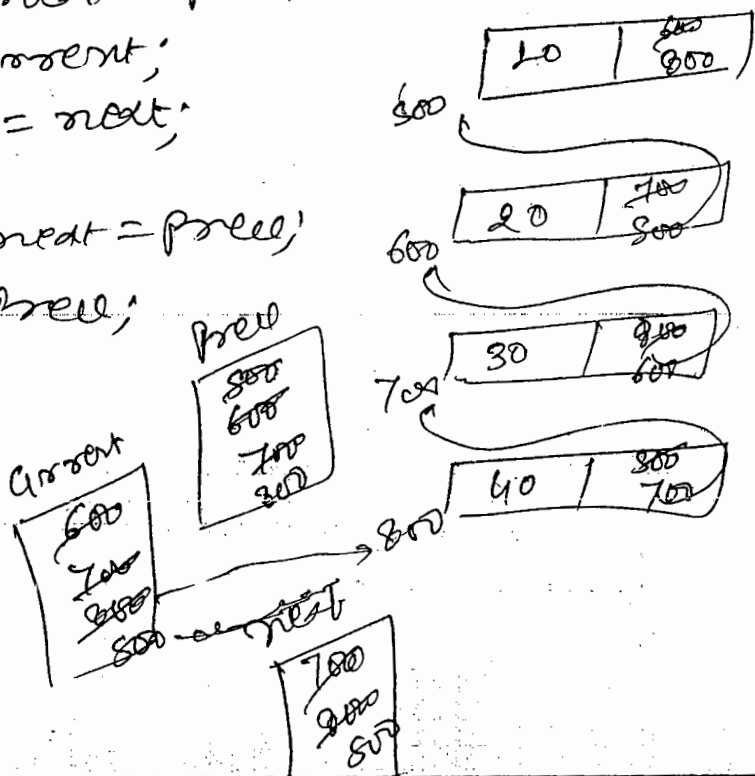 rrent;
= next;
next = prev;
prev;
10 | 800
500
20 | 700 500
600
30 | 800 600
700
40 | 500 700
800
Prev
500
600
700
800
Current
600
700
800
500
next
700
800
500